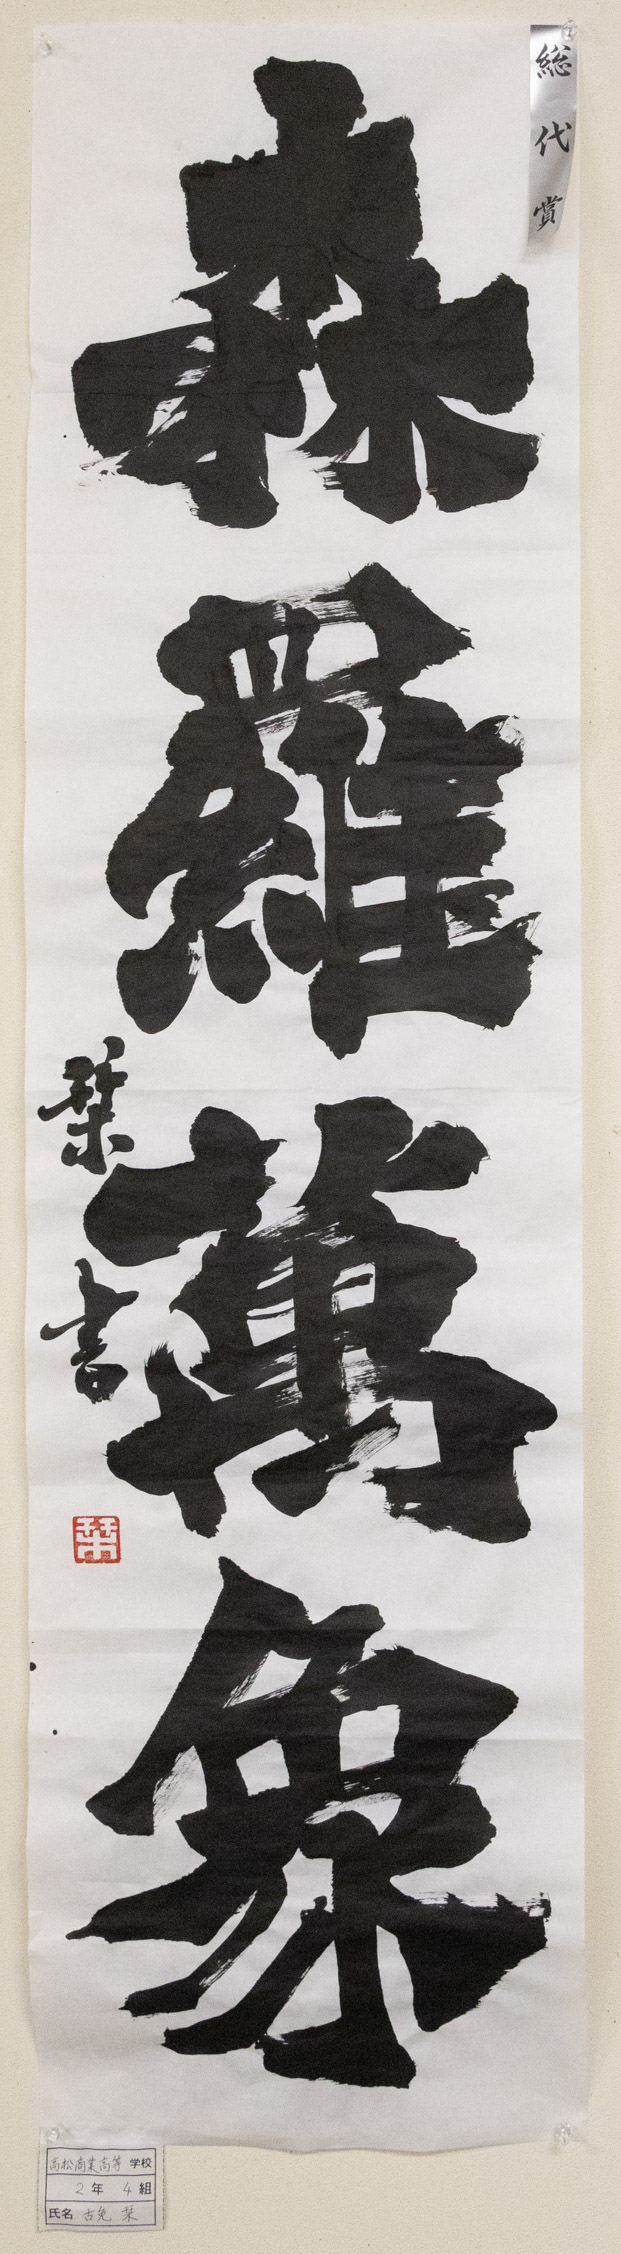 総代賞
森羅萬象
栞書
栞
高松商業高等学校
2年 4組
氏名 古兔 栞